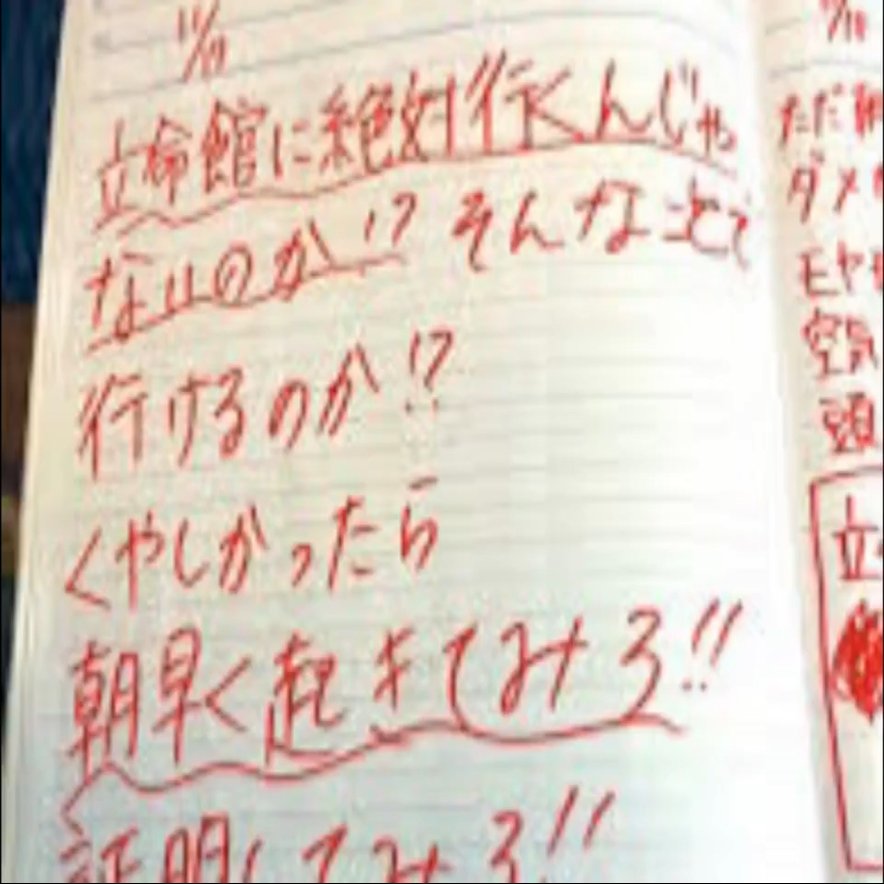 11/19
立命館に絶対行くんじゃ
ないのか!? そんなことで
行けるのか!?
くやしかったら
朝早く起きてみろ!!
証明してみろ!!
ただ
ダメ
モヤモ
空気
頭
立